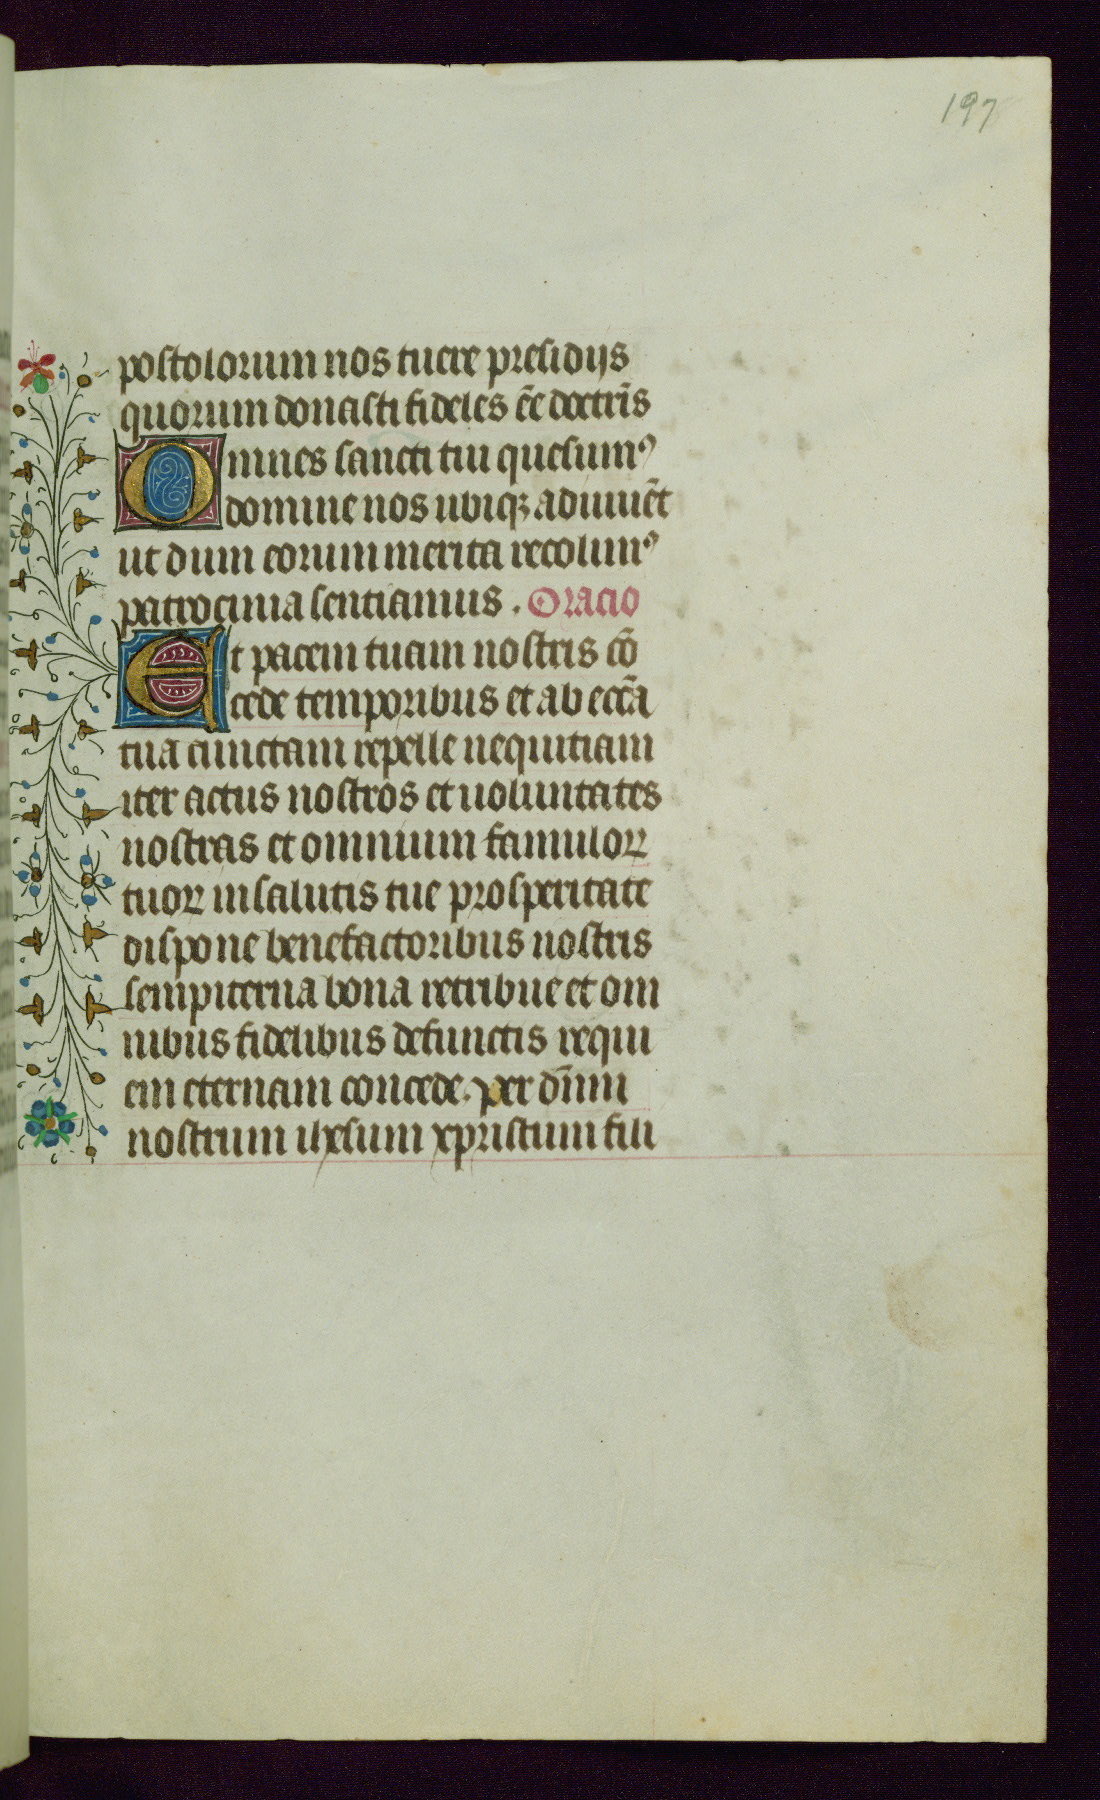 197
postolorum nos tuere presidijs
quorum donasti fideles eẽ doctrĩs
Omnes sancti tui quesumꝰ
domine nos ubiqꝫ adiuuẽt
ut dum eorum merita recolimꝰ
patrocinia sentiamus . Oracio
Et pacem tuam nostris cõ
cede temporibus et ab eccl̃a
tua cunctam repelle nequitiam
iter actus nostros et uoluntates
nostras et omnium famuloꝝ
tuoꝝ in salutis tue prosperitate
dispone benefactoribus nostris
sempiterna bona retribue et om
nibus fidelibus defunctis requi
em eternam concede. per dñm
nostrum ihesum xpristum fili